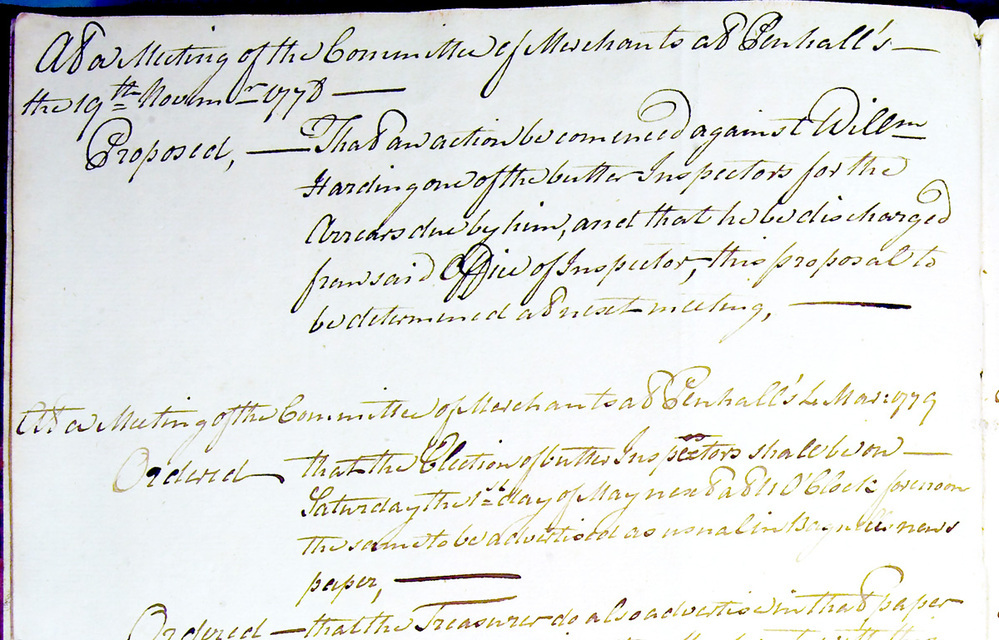 At a Meeting of the Committee of Merchants at Penhall's —
the 19th Novemr 1778 —
Proposed, — That an action be comenced against Willm
Harding one of the butter Inspectors for the
Arrears due by him, and that he be discharged
from said Office of Inspector, this proposal to
be determined at next meeting, —
At a Meeting of the Committee of Merchants at Penhall's 4 Mar: 1779
Ordered — that the Election of butter Inspectors shall be on —
Saturday the 1st day of May next at 11 O'Clock forenoon
the same to be advertised as usual in Bagnell's news
paper, —
Ordered — that the Treasurer do also advertise in that paper